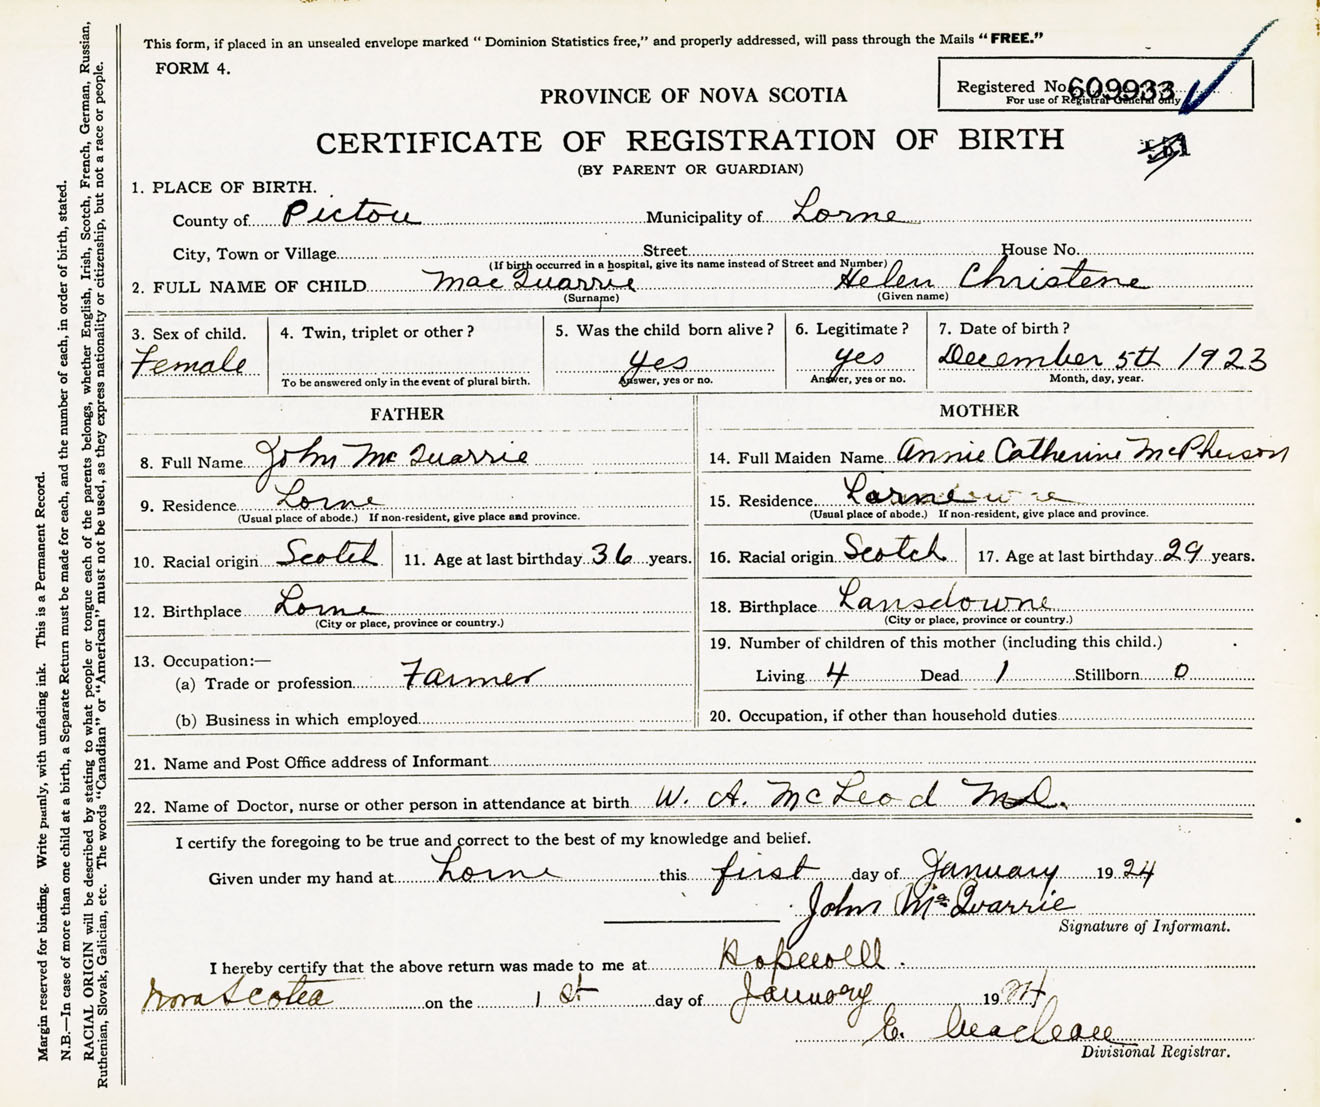 This form, if placed in an unsealed envelope marked "Dominion Statistics free," and properly addressed, will pass through the Mails "FREE."
FORM 4.
Registered No. 609933
For use of Registrar General only
PROVINCE OF NOVA SCOTIA
CERTIFICATE OF REGISTRATION OF BIRTH
(BY PARENT OR GUARDIAN)
1. PLACE OF BIRTH.
County of Pictou Municipality of Lorne
City, Town or Village Street House No.
(If birth occurred in a hospital, give its name instead of Street and Number)
2. FULL NAME OF CHILD MacQuarrie Helen Christene
(Surname) (Given name)
3. Sex of child. 4. Twin, triplet or other? 5. Was the child born alive? 6. Legitimate? 7. Date of birth?
Female yes yes December 5th 1923
To be answered only in the event of plural birth. Answer, yes or no. Answer, yes or no. Month, day, year.
FATHER MOTHER
8. Full Name John McQuarrie 14. Full Maiden Name Annie Catherine McPherson
9. Residence Lorne 15. Residence Lorne
(Usual place of abode.) If non-resident, give place and province. (Usual place of abode.) If non-resident, give place and province.
10. Racial origin Scotch 11. Age at last birthday 36 years. 16. Racial origin Scotch 17. Age at last birthday 29 years.
12. Birthplace Lorne 18. Birthplace Lansdowne
(City or place, province or country.) (City or place, province or country.)
13. Occupation:— 19. Number of children of this mother (including this child.)
(a) Trade or profession Farmer Living 4 Dead 1 Stillborn 0
(b) Business in which employed 20. Occupation, if other than household duties
21. Name and Post Office address of Informant
22. Name of Doctor, nurse or other person in attendance at birth W. A. McLeod MD.
I certify the foregoing to be true and correct to the best of my knowledge and belief.
Given under my hand at Lorne this first day of January 1924
John McQuarrie
Signature of Informant.
I hereby certify that the above return was made to me at Hopewell.
Nova Scotia on the 1st day of January 1924
E. Maclean
Divisional Registrar.
Margin reserved for binding. Write plainly, with unfading ink. This is a Permanent Record.
N.B.—In case of more than one child at a birth, a Separate Return must be made for each, and the number of each, in order of birth, stated.
RACIAL ORIGIN will be described by stating to what people or tongue each of the parents belongs, whether English, Irish, Scotch, French, German, Russian,
Ruthenian, Slovak, Galician, etc. The words "Canadian" or "American" must not be used, as they express nationality or citizenship, but not a race or people.